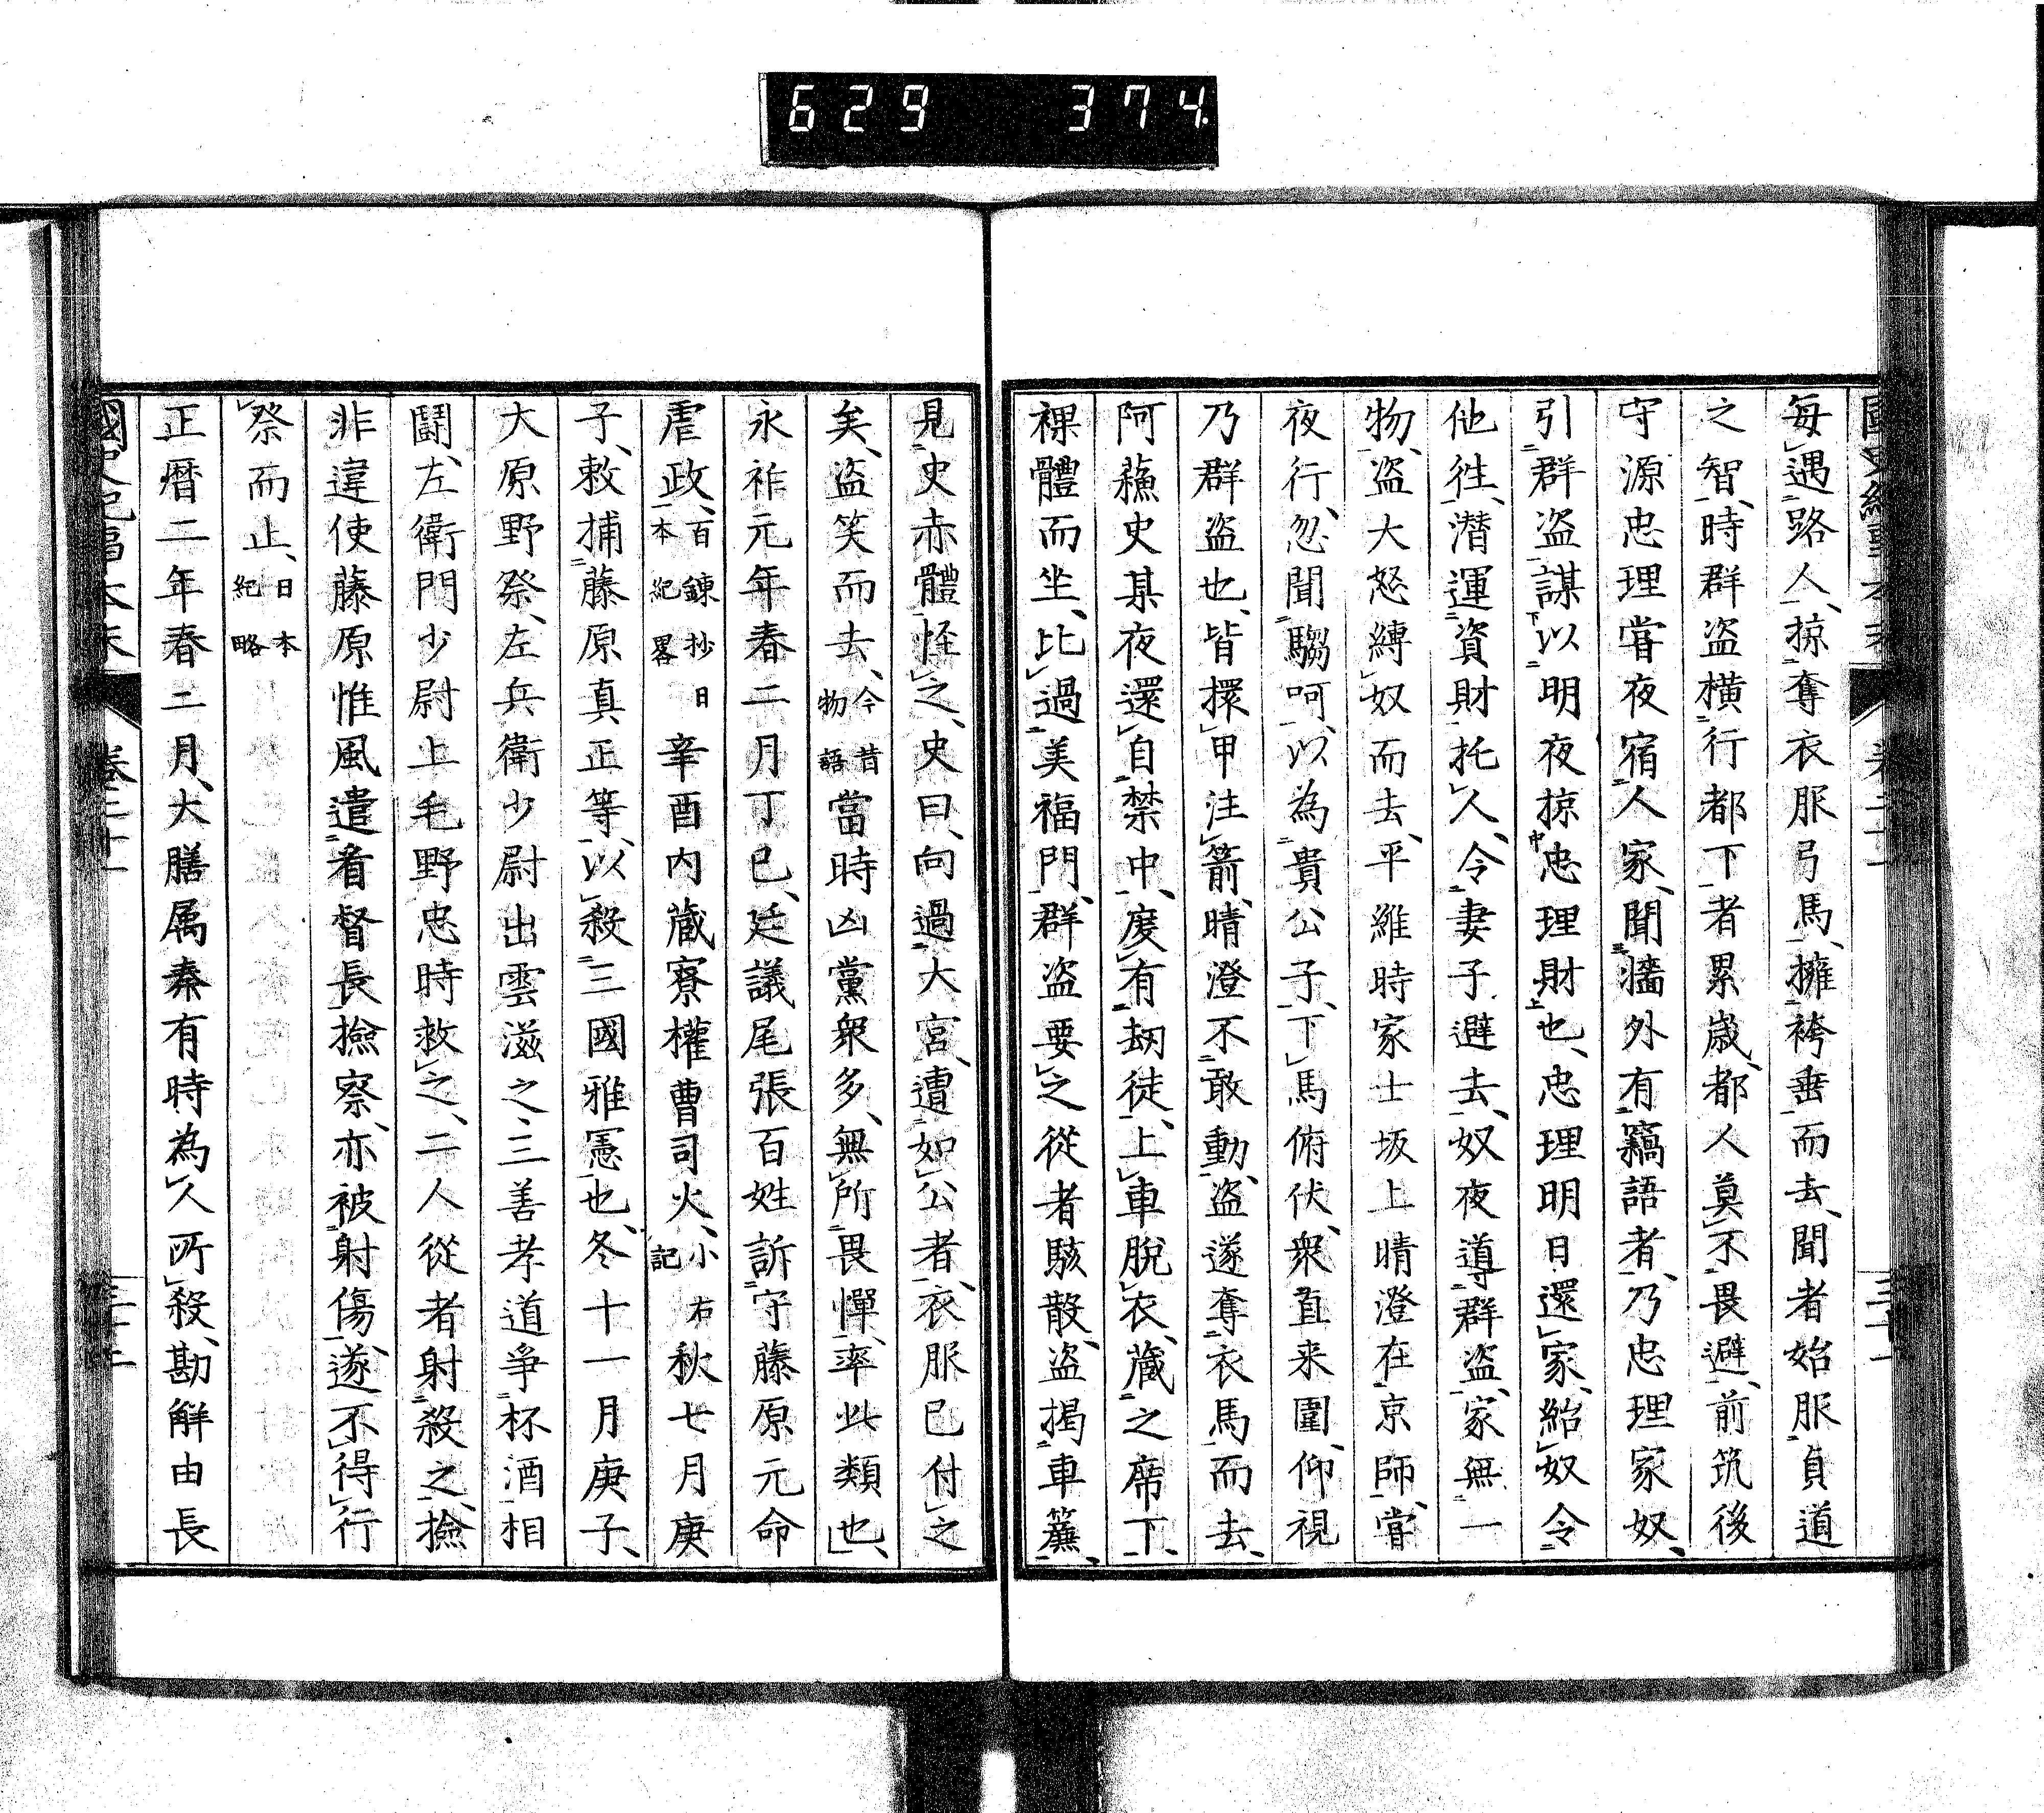 629 374
每遇路人、掠奪衣服弓馬、擁袴垂而去、聞者始服貞道
之智、時群盗横行都下者累歳、都人莫不畏避、前筑後
守源忠理甞夜宿人家、聞牆外有竊語者、乃忠理家奴、
引群盗謀以明夜掠忠理財也、忠理明日還家、紿奴令
他徃、潜運資財托人、令妻子避去、奴夜導群盗、家無一
物、盗大怒縛奴而去、平維時家士坂上晴澄在京師、甞
夜行、忽聞騶呵、以為貴公子、下馬俯伏、衆直来圍、仰視
乃群盗也、皆擐甲注箭、晴澄不敢動、盗遂奪衣馬而去、
阿蘓史某夜還自禁中、度有劫徒、上車脱衣、蔵之席下、
裸體而坐、比過美福門、群盗要之從者駭散、盗掲車簾、
見史赤體怪之、史曰、向過大宮、遭如公者、衣服已付之
矣、盗笑而去、今昔物語當時凶黨衆多、無所畏憚、率此類也、
永祚元年春二月丁巳、廷議尾張百姓訴守藤原元命
虐政、百錬抄日本紀畧辛酉内蔵寮權曹司火、小右記秋七月庚
子、敕捕藤原真正等、以殺三國雅憲也、冬十一月庚子、
大原野祭、左兵衛少尉出雲滋之、三善孝道爭杯酒相
鬪、左衛門少尉上毛野忠時救之、二人從者射殺之、撿
非違使藤原惟風遣看督長撿察、亦被射傷、遂不得行
祭而止、日本紀略
正暦二年春二月、大膳属秦有時為人所殺、勘解由長
國史紀事本末 卷二十一